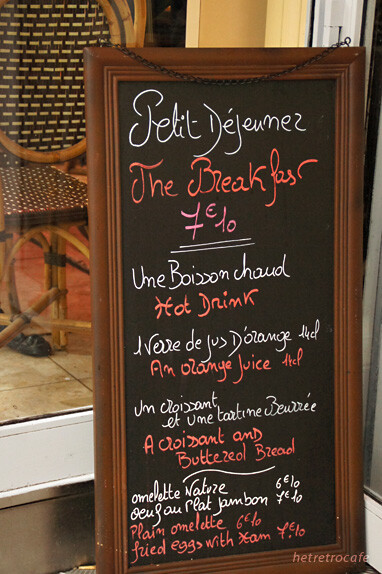 Petit-Déjeuner
The Breakfast
7€10
Une Boisson chaud
Hot Drink
1 Verre de jus D'orange 14cl
An orange Juice 14cl
un croissant
et une tartine Beurrée
A croissant and
Buttered Bread
omelette Nature 6€10
oeuf au Plat jambon 7€10
Plain omelette 6€10
fried eggs with Ham 7€10
hetretrocafe